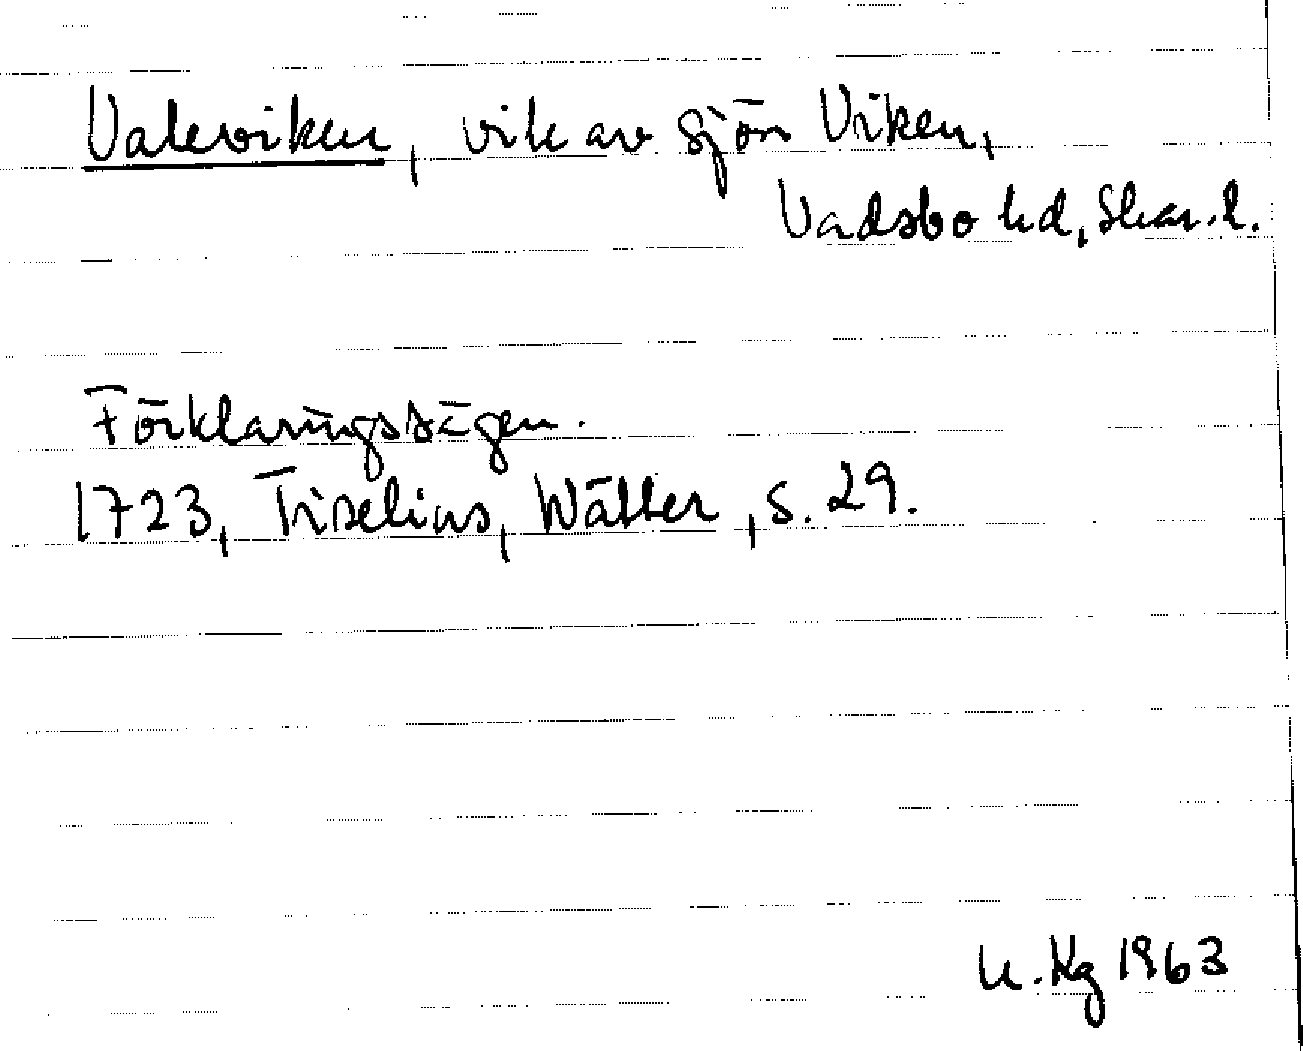 Valeviken, vik av sjön Viken,
Vadsbo hd, Skar. l.
Förklaringssägen.
1723, Tiselius, Wätter, s. 29.
1963